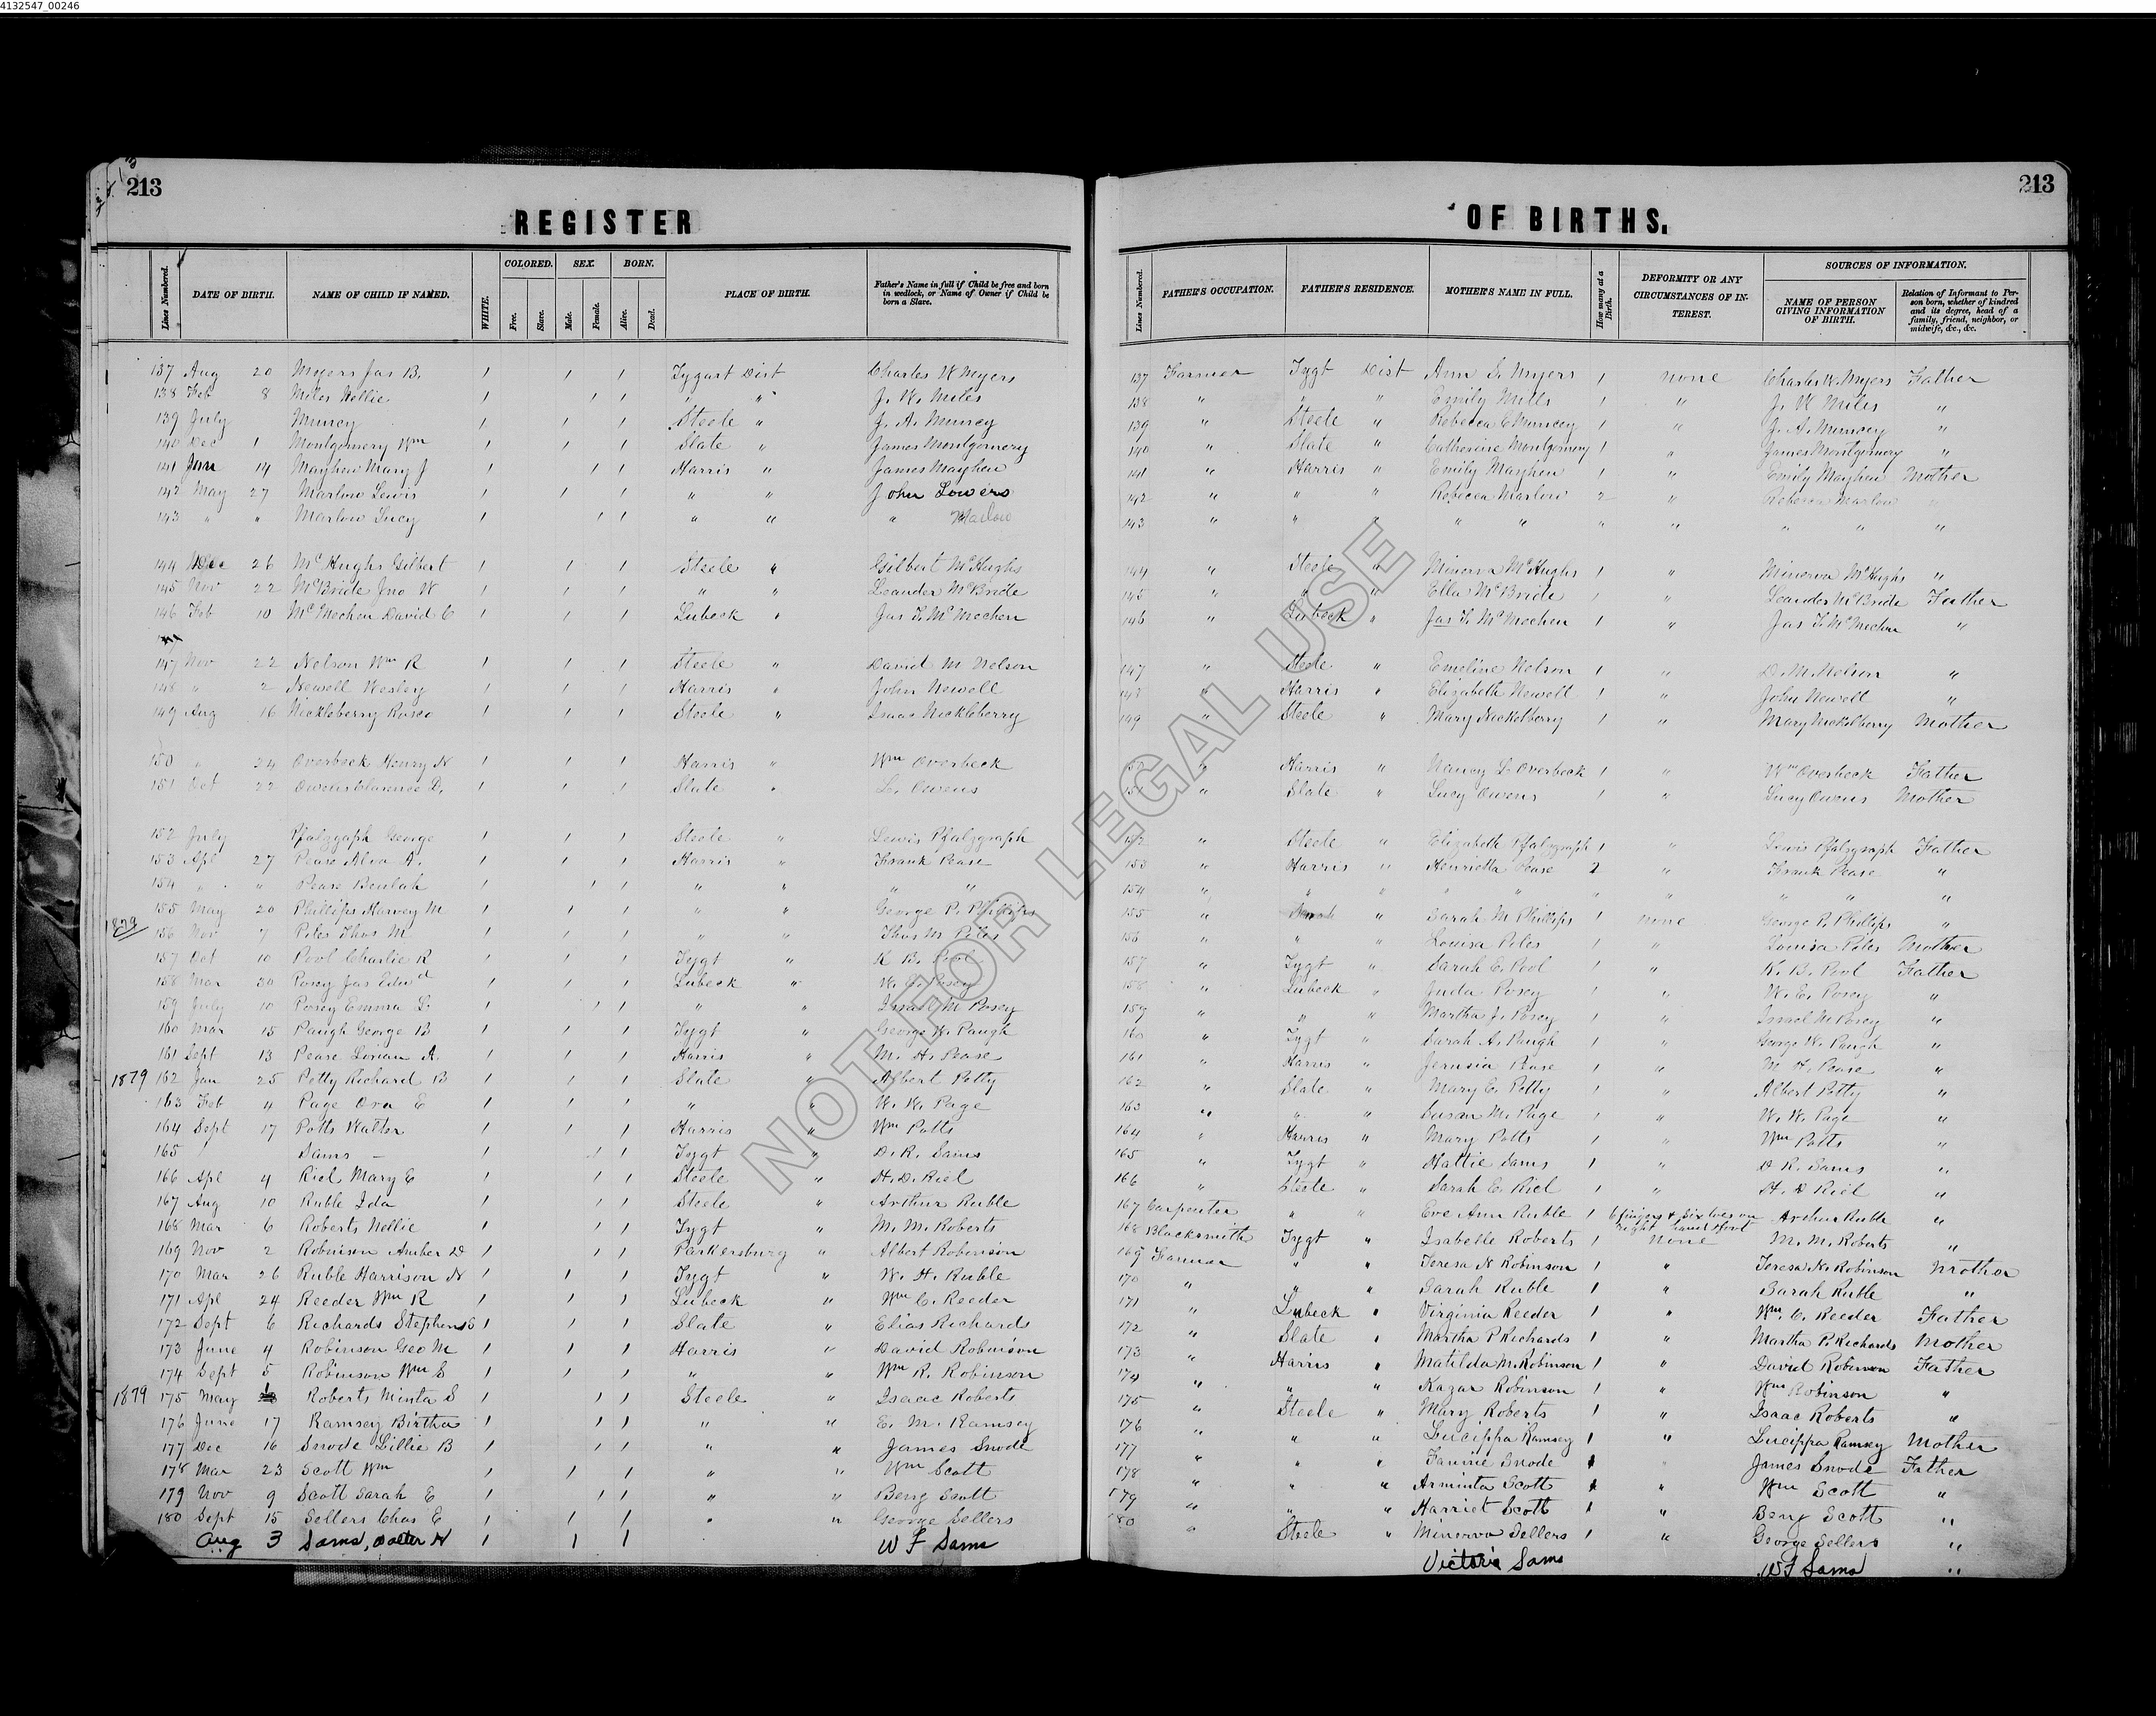 4132547_00246
213
213
REGISTER
OF BIRTHS.
Lines Numbered. DATE OF BIRTH. NAME OF CHILD IF NAMED. WHITE. COLORED. Free. Slave. SEX. Male. Female. BORN. Alive. Dead. PLACE OF BIRTH. Father's Name in full if Child be free and born in wedlock, or Name of Owner if Child be born a Slave.
Lines Numbered. FATHER'S OCCUPATION. FATHER'S RESIDENCE. MOTHER'S NAME IN FULL. How many at a Birth. DEFORMITY OR ANY CIRCUMSTANCES OF INTEREST. SOURCES OF INFORMATION. NAME OF PERSON GIVING INFORMATION OF BIRTH. Relation of Informant to Person born, whether of kindred and its degree, head of a family, friend, neighbor, or midwife, &c., &c.
137 Aug 20 Myers Jas B. 1 1 1 Tygart Dist Charles W Myers 137 Farmer Tygt Dist Ann S. Myers 1 none Charles W. Myers Father
138 Feb 8 Miles Nellie 1 1 1 " " J. W. Miles 138 " " " Emily Mills 1 " J. W Miles "
139 July Muncy 1 1 1 Steele " J. A. Muncy 139 " Steele " Rebecca C Muncey 1 " J. A. Muncey "
140 Dec 1 Montgomery Wm 1 1 1 Slate " James Montgomery 140 " Slate " Catherine Montgomery 1 " James Montgomery "
141 Jan 14 Mayhew Mary J 1 1 1 Harris " James Mayhew 141 " Harris " Emily Mayhew 1 " Emily Mayhew Mother
142 May 27 Marlow Lewis 1 1 1 " " John Lowers 142 " " " Rebecca Marlow 2 " Rebecca Marlow "
143 " " Marlow Lucy 1 1 1 " " " Marlow 143 " " " " " " " " " "
144 Dec 26 McHughs Gilbert 1 1 1 Steele " Gilbert McHughs 144 " Steele " Minerva McHughs 1 " Minerva McHughs "
145 Nov 22 McBride Jno W 1 1 1 " " Leander McBride 145 " " " Ella McBride 1 " Leander McBride Father
146 Feb 10 McMechen David C 1 1 1 Lubeck " Jas F. McMechen 146 " Lubeck " Jas F. McMechen 1 " Jas F. McMechen "
147 Nov 22 Nelson Wm R 1 1 1 Steele " David M Nelson 147 " Steele " Emeline Nelson 1 " D. M. Nelson "
148 " 2 Newell Wesley 1 1 1 Harris " John Newell 148 " Harris " Elizabeth Newell 1 " John Newell "
149 Aug 16 Nickleberry Rosco 1 1 1 Steele " Isaac Nickleberry 149 " Steele " Mary Nickelberry 1 " Mary Nickelberry Mother
150 " 24 Overbeck Henry N 1 1 1 Harris " Wm Overbeck 150 " Harris " Nancy L. Overbeck 1 " Wm Overbeck Father
151 Oct 22 Owens Clarence D. 1 1 1 Slate " L. Owens 151 " Slate " Lucy Owens 1 " Lucy Owens Mother
152 July Pfalzgaph George 1 1 1 Steele " Lewis Pfalzgraph 152 " Steele " Elizabeth Pfalzgraph 1 " Lewis Pfalzgraph Father
153 Apl 27 Pease Alva A. 1 1 1 Harris " Frank Pease 153 " Harris " Henrietta Pease 2 " Frank Pease "
154 " " Pease Beulah 1 1 1 " " " " 154 " " " " " " " " " "
155 May 20 Phillips Harvey M 1 1 1 " " George P. Phillips 155 " " Sarah M Phillips 1 none George P. Phillips "
1879 156 Nov 7 Piles Thos M 1 1 1 " " Thos M Piles 156 " " " Louisa Piles 1 " Louisa Piles Mother
157 Oct 10 Pool Charlie R 1 1 1 Tygt " K B. Pool 157 " Tygt " Sarah E. Pool 1 " K. B. Pool Father
158 Mar 30 Posey Jas Edwd 1 1 1 Lubeck " W. E. Posey 158 " Lubeck " Juda Posey 1 " W. E. Posey "
159 July 10 Posey Emma L. 1 1 1 " " Israel M Posey 159 " " " Martha J. Posey 1 " Israel M Posey "
160 Mar 15 Paugh George B 1 1 1 Tygt " George W. Paugh 160 " Tygt " Sarah A. Paugh 1 " George W. Paugh "
161 Sept 13 Pease Lorian A. 1 1 1 Harris " M. H. Pease 161 " Harris " Jerusia Pease 1 " M H. Pease "
1879 162 Jan 25 Petty Richard B 1 1 1 Slate " Albert Petty 162 " Slate " Mary E. Petty 1 " Albert Petty "
163 Feb 4 Page Ora E 1 1 1 " " W. W. Page 163 " " " Susan M. Page 1 " W. W. Page "
164 Sept 17 Potts Walter 1 1 1 Harris " Wm Potts 164 " Harris " Mary Potts 1 " Wm Potts "
165 Sams 1 1 1 Tygt " D. R. Sams 165 " Tygt " Hattie Sams 1 " D R. Sams "
166 Apl 4 Riel Mary E 1 1 1 Steele " H. D. Riel 166 " Steele " Sarah E. Riel 1 " H. D Riel "
167 Aug 10 Ruble Ida 1 1 1 Steele " Arthur Ruble 167 Carpenter " " Eve Ann Ruble 1 6 fingers & six toes on right hand & foot Arthur Ruble "
168 Mar 6 Roberts Nellie 1 1 1 Tygt " M. M. Roberts 168 Blacksmith Tygt " Isabelle Roberts 1 none M. M. Roberts "
169 Nov 2 Robinson Amber D 1 1 1 Parkersburg " Albert Robinson 169 Farmer " " Teresa N Robinson 1 " Teresa N. Robinson Mother
170 Mar 26 Ruble Harrison N 1 1 1 Tygt " W. H. Ruble 170 " " " Sarah Ruble 1 " Sarah Ruble "
171 Apl 24 Reeder Wm R 1 1 1 Lubeck " Wm C. Reeder 171 " Lubeck " Virginia Reeder 1 " Wm. C. Reeder Father
172 Sept 6 Richards Stephen S 1 1 1 Slate " Elias Richards 172 " Slate " Martha P Richards 1 " Martha P. Richards Mother
173 June 4 Robinson Geo M 1 1 1 Harris " David Robinson 173 " Harris " Matilda M. Robinson 1 " David Robinson Father
174 Sept 5 Robinson Wm S 1 1 1 " " Wm R. Robinson 174 " " " Kazar Robinson 1 " Wm Robinson "
1879 175 May Roberts Minta S 1 1 1 Steele " Isaac Roberts 175 " Steele " Mary Roberts 1 " Isaac Roberts "
176 June 17 Ramsey Birtha 1 1 1 " " E. M. Ramsey 176 " " " Lucippa Ramsey 1 " Lucippa Ramsey Mother
177 Dec 16 Snode Lillie B 1 1 1 " " James Snode 177 " " " Fannie Snode 1 " James Snode Father
178 Mar 23 Scott Wm 1 1 1 " " Wm Scott 178 " " " Arminta Scott 1 " Wm Scott "
179 Nov 9 Scott Sarah E 1 1 1 " " Benj Scott 179 " " " Harriet Scott 1 " Benj Scott "
180 Sept 15 Sellers Chas E 1 1 1 " " George Sellers 180 " Steele " Minerva Sellers 1 " George Sellers "
Aug 3 Sams, Walter N 1 1 1 W F Sams Victoria Sams W F Sams "
NOT FOR LEGAL USE